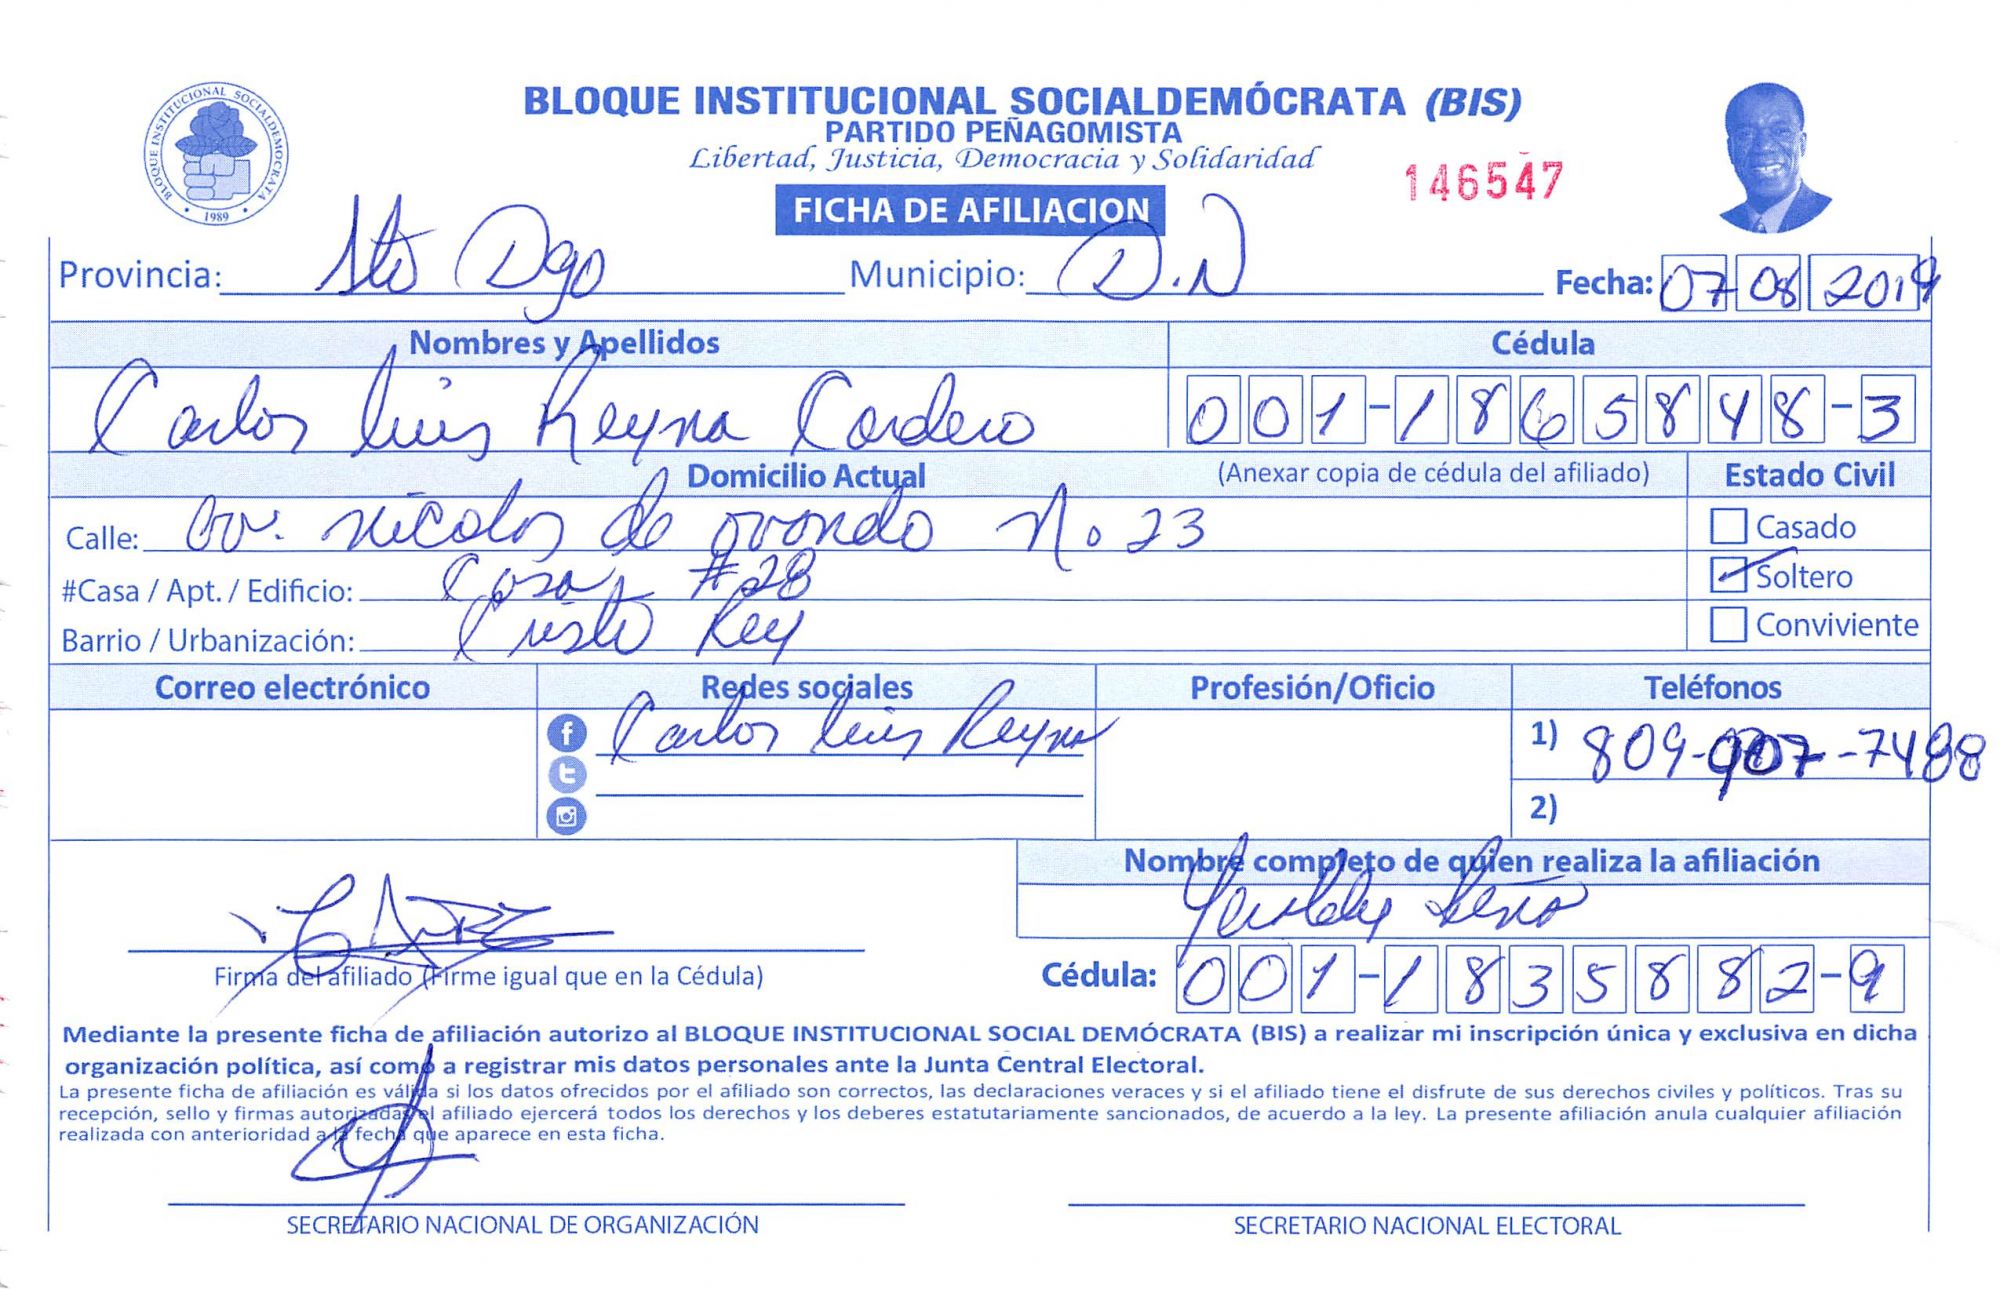 BLOQUE INSTITUCIONAL SOCIALDEMÓCRATA (BIS)
PARTIDO PEÑAGOMISTA
Libertad, Justicia, Democracia y Solidaridad
146547
BLOQUE INSTITUCIONAL SOCIALDEMOCRATA
• 1989 •
FICHA DE AFILIACION
Provincia: Sto Dgo Municipio: D.N Fecha: 07 08 2019
Nombres y Apellidos Cédula
Carlos Luis Reyna Cordero 001-1865848-3
Domicilio Actual (Anexar copia de cédula del afiliado) Estado Civil
Calle: av. nicolas de ovando No 23 Casado
#Casa / Apt. / Edificio: Casa #28 Soltero
Barrio / Urbanización: Cristo Rey Conviviente
Correo electrónico Redes sociales Profesión/Oficio Teléfonos
Carlos Luis Reyna 1) 809-907-7488
2)
Nombre completo de quien realiza la afiliación
Firma del afiliado (Firme igual que en la Cédula) Cédula: 001-1835882-9
Mediante la presente ficha de afiliación autorizo al BLOQUE INSTITUCIONAL SOCIAL DEMÓCRATA (BIS) a realizar mi inscripción única y exclusiva en dicha
organización política, así como a registrar mis datos personales ante la Junta Central Electoral.
La presente ficha de afiliación es válida si los datos ofrecidos por el afiliado son correctos, las declaraciones veraces y si el afiliado tiene el disfrute de sus derechos civiles y políticos. Tras su
recepción, sello y firmas autorizadas el afiliado ejercerá todos los derechos y los deberes estatutariamente sancionados, de acuerdo a la ley. La presente afiliación anula cualquier afiliación
realizada con anterioridad a la fecha que aparece en esta ficha.
SECRETARIO NACIONAL DE ORGANIZACIÓN SECRETARIO NACIONAL ELECTORAL